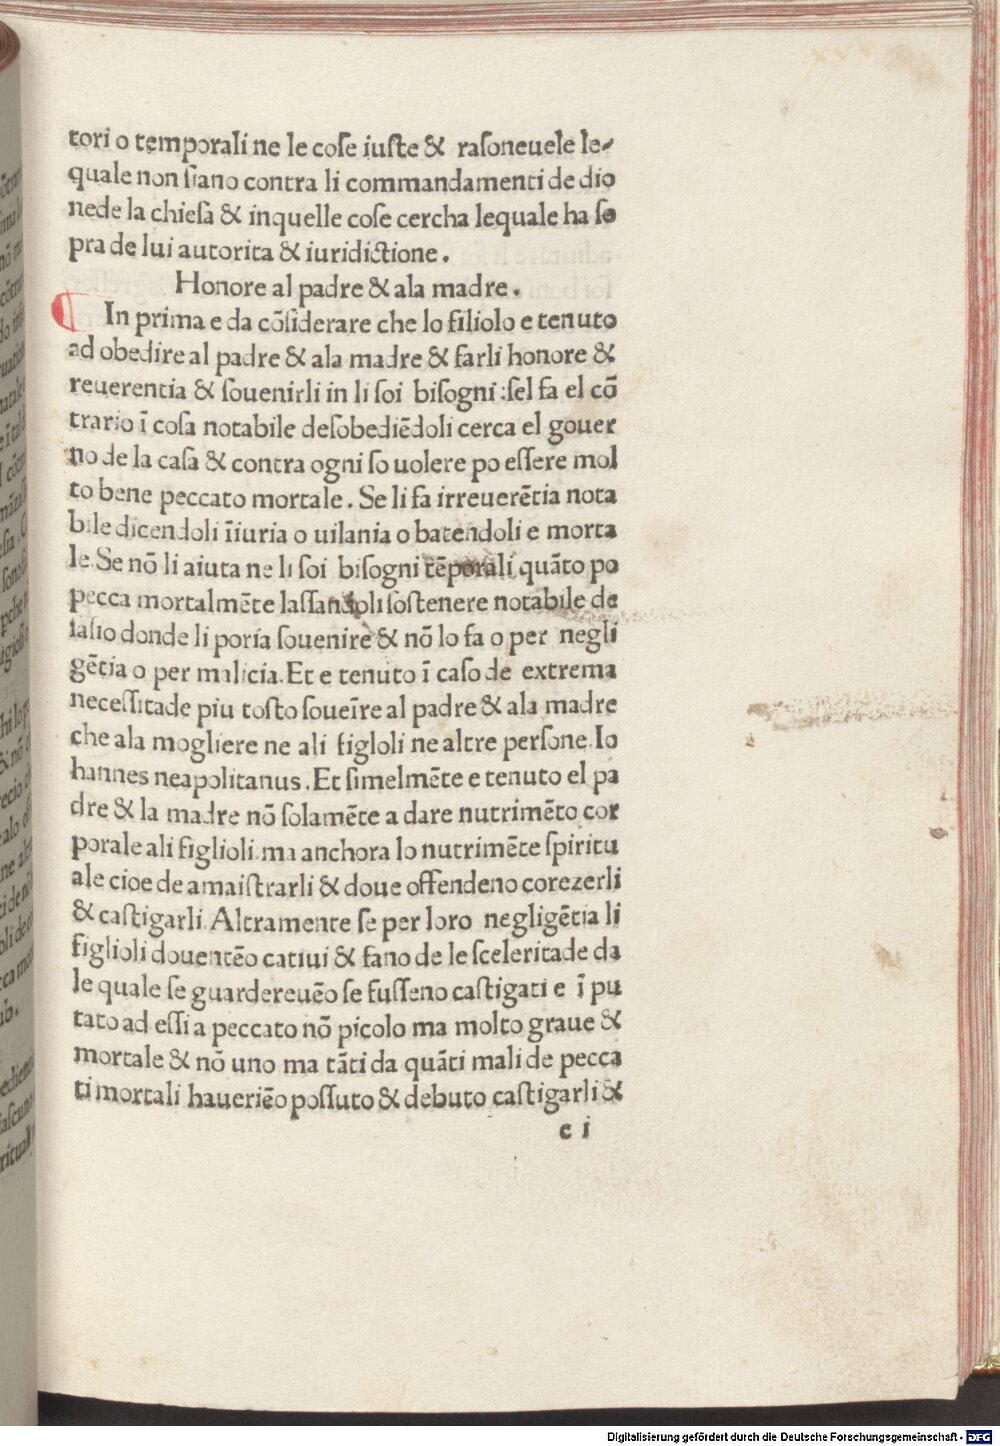 tori o temporali ne le cose iuste & rasoneuele le-
quale non siano contra li commandamenti de dio
nede la chiesa & inquelle cose cercha lequale ha so
pra de lui autorita & iuridictione.
Honore al padre & ala madre.
In prima e da cōsiderare che lo filiolo e tenuto
ad obedire al padre & ala madre & farli honore &
reuerentia & souenirli in li soi bisogni :sel fa el cō
trario ī cosa notabile desobediēdoli cerca el gouer
no de la casa & contra ogni so uolere po essere mol
to bene peccato mortale. Se li fa irreuerētia nota
bile dicendoli īiuria o uilania o batendoli e morta
le. Se nō li aiuta ne li soi bisogni tēporali quāto po
pecca mortalmēte lassandoli sostenere notabile de
sasio donde li poria souenire & nō lo fa o per negli
gētia o per malicia. Et e tenuto ī caso de extrema
necessitade piu tosto soueīre al padre & ala madre
che ala mogliere ne ali figloli ne altre persone. Io
hannes neapolitanus. Et simelmēte e tenuto el pa
dre & la madre nō solamēte a dare nutrimēto cor
porale ali figlioli. ma anchora lo nutrimēte spiritu
ale cioe de amaistrarli & doue offendeno corezerli
& castigarli. Altramente se per loro negligētia li
figlioli douentēo catiui & fano de le sceleritade da
le quale se guardereuēo se fusseno castigati e ī pu
tato ad essi a peccato nō picolo ma molto graue &
mortale & nō uno ma tāti da quāti mali de pecca
ti mortali haueriēo possuto & debuto castigarli &
e i
Digitalisierung gefördert durch die Deutsche Forschungsgemeinschaft - DFG